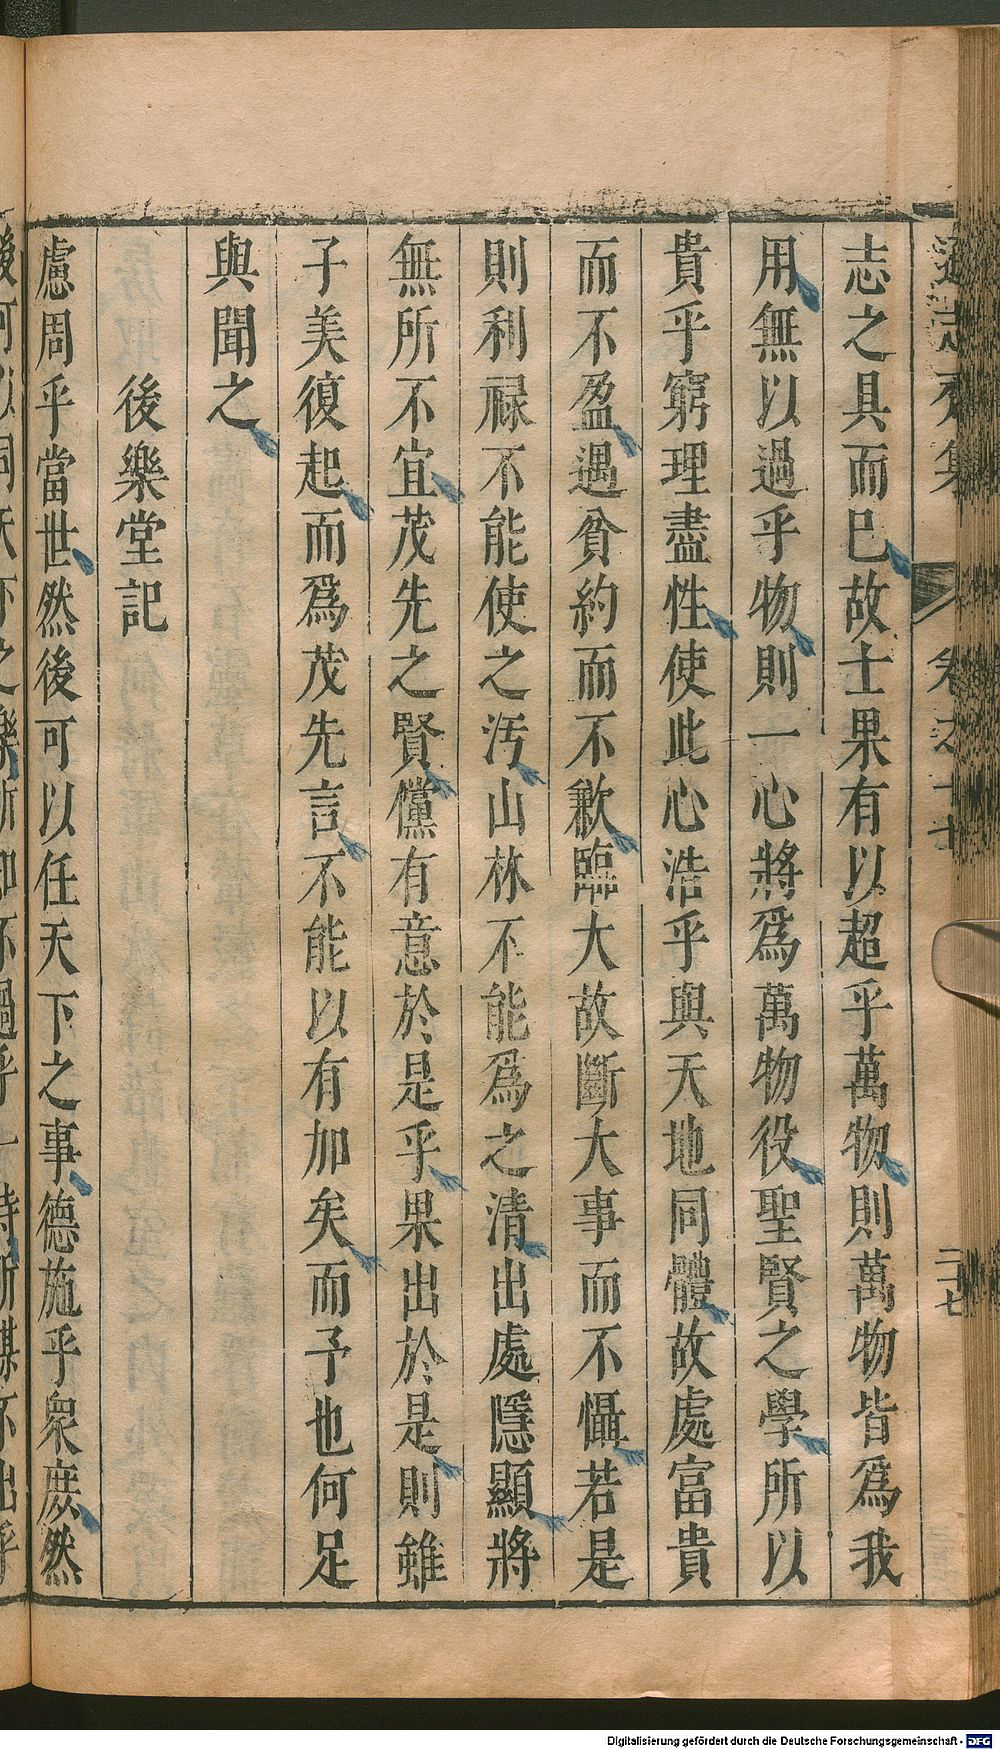 志之具而已故士果有以超乎萬物則萬物皆爲我
用無以過乎物則一心將爲萬物役聖賢之學所以
貴乎窮理盡性使此心浩乎與天地同體故處富貴
而不盈遇貧約而不歉臨大故斷大事而不懾若是
則利祿不能使之汚山林不能爲之清出處隱顯將
無所不宜茂先之賢儻有意於是乎果出於是則雖
子美復起而爲茂先言不能以有加矣而予也何足
與聞之
後樂堂記
慮周乎當世然後可以任天下之事德施乎衆庶然
Digitalisierung gefördert durch die Deutsche Forschungsgemeinschaft - DFG